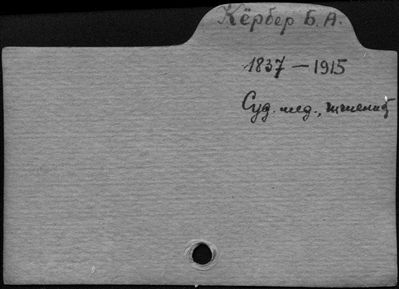 Кёрбер Б. А.
1837 — 1915
Суд. мед., гигиенист